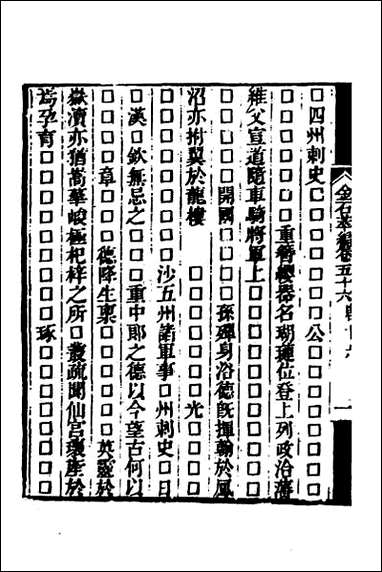 金石萃編卷五十六 一
□四州刺史□□□□□□□公□□□□□□□□
□□□□□□□重簪纓器名瑚璉位登上列政治藩
維父宣道隨車騎將軍上□□□□□□□□□□□
□□□□□開國□□□□孫殫身浴德旣揮翰於風
沼亦拊翼於龍樓　　□□□□□□□光□□□□
□□□□□□□□□沙五州諸軍事□州刺史□日
□漢□欽無忌之□□□重中郎之德以今望古何以
□□□□章□□□德降生稟□□□□□□英靈於
嶽瀆亦猶嵩華峻極杞梓之所□叢疏聞仙宮瓌產於
爲孕育□□□□□□□□□琢□□□□□□□□